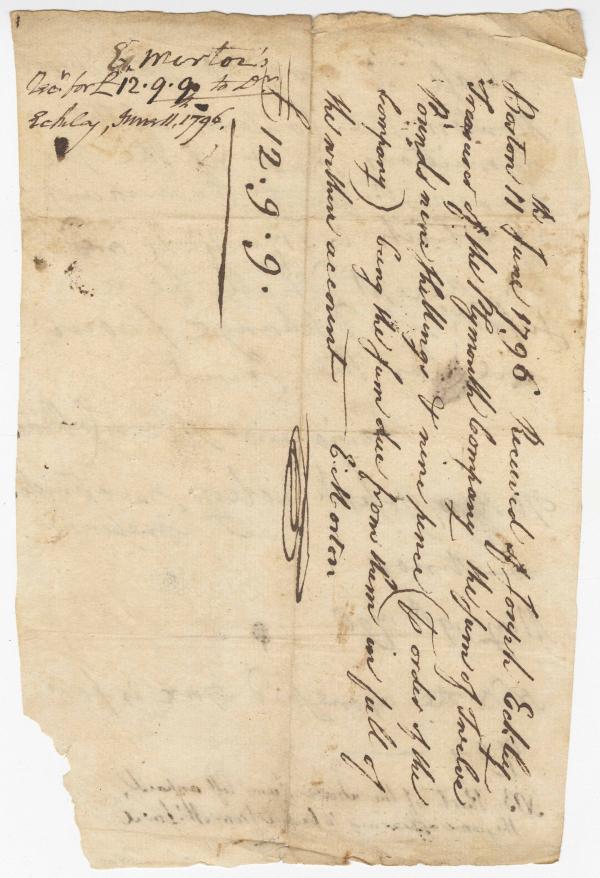 E. Morton's
Rect for £12.9.9 to Dn
Eckley, June 11. 1796.
Boston 11th June 1796 Received of Joseph Eckley
Treasurer of the Plymouth Company the sum of Twelve
Pounds nine shillings & nine pence (P order of the
Company) being the sum due from them in full of
the within account — E. Morton
£ 12.9.9.